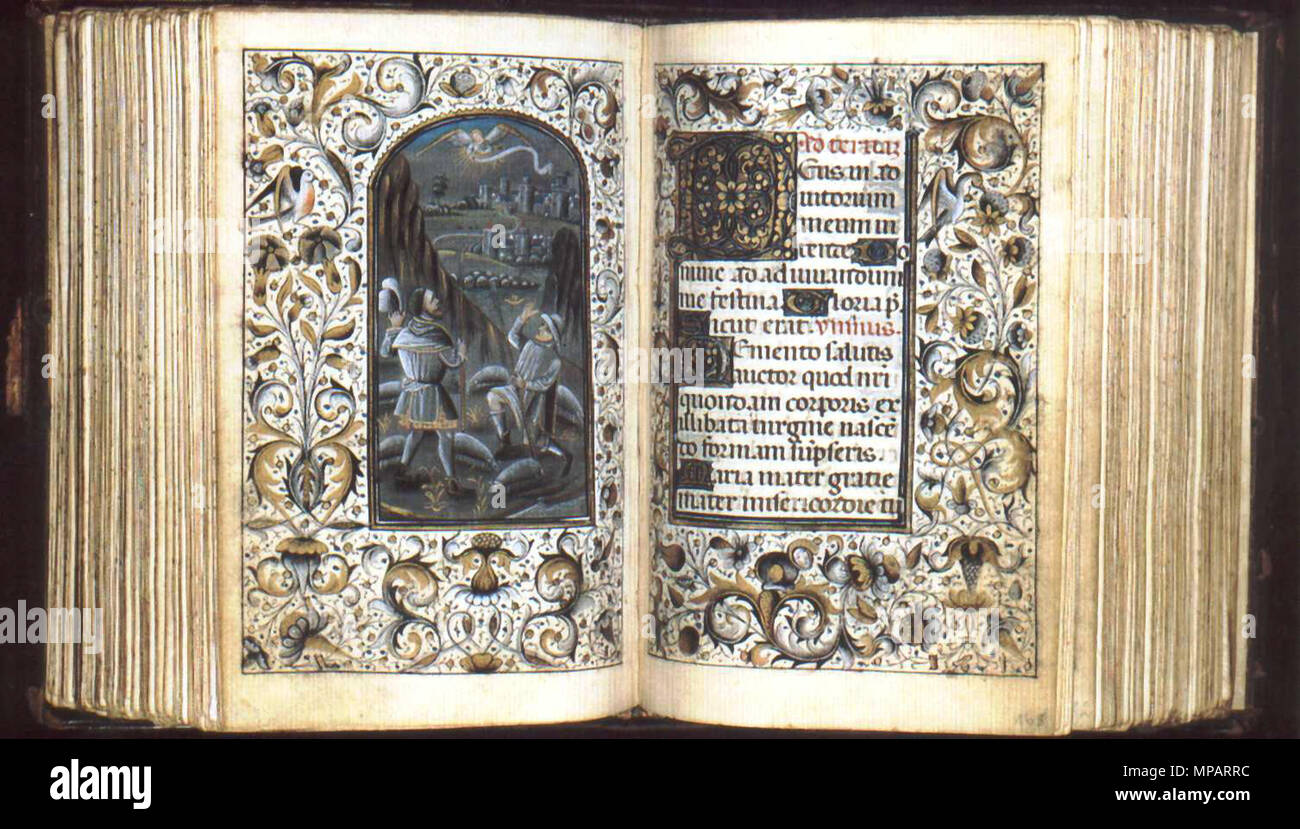 Ad terciaz
Deus in ad
iutorium
meum in
tende Do
mine ad adiuuandum
me festina. Gloria p
Sicut erat. ymnus.
Memento salutis
auctor quod nri
quondam corporis ex
illibata uirgine nascē
do formam sūpseris.
Maria mater gratie
mater misericordie tu
163
a
alamy
alamy
Image ID: MPARRC
www.alamy.com